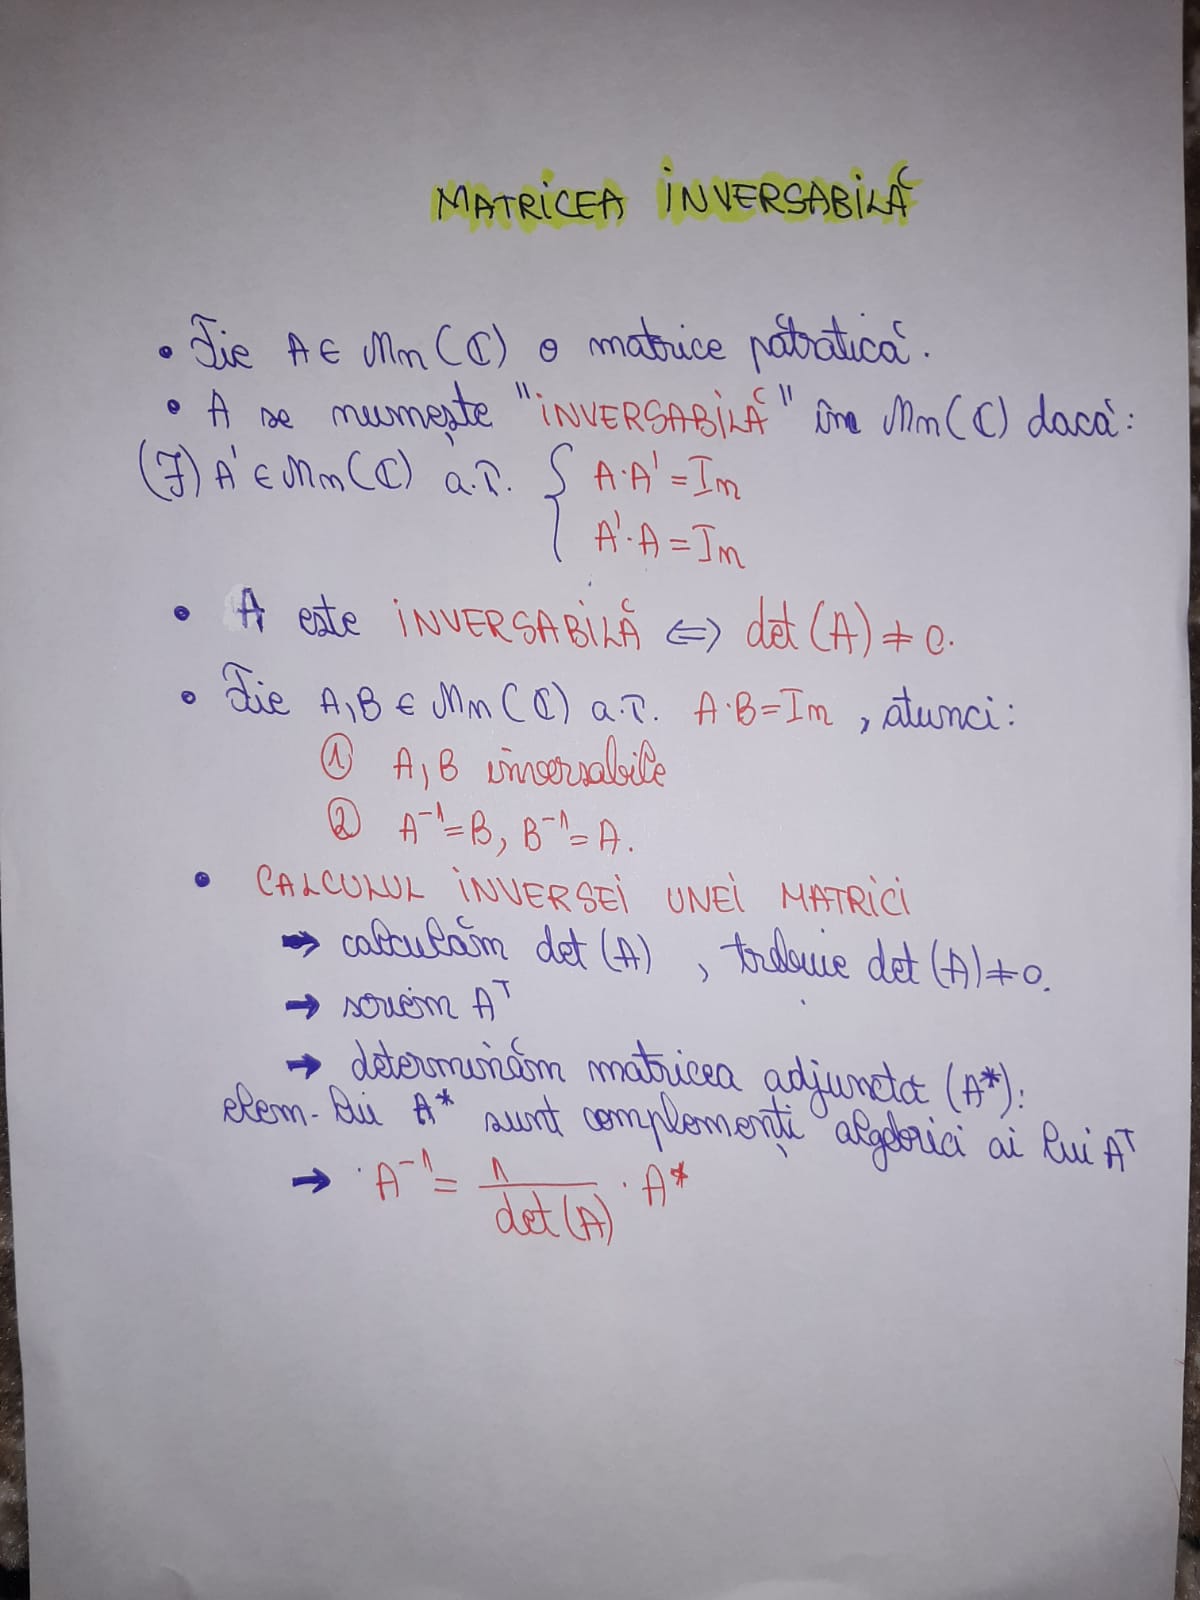 MATRICEA INVERSABILĂ
• Fie A ∈ Mn(ℂ) o matrice pătratică.
• A se numește "INVERSABILĂ" în Mn(ℂ) dacă:
(∃) A' ∈ Mn(ℂ) a.î. { A·A' = In
A'·A = In
• A este INVERSABILĂ ⇔ det(A) ≠ 0.
• Fie A,B ∈ Mn(ℂ) a.î. A·B = In, atunci:
① A,B inversabile
② A⁻¹=B, B⁻¹=A.
• CALCULUL INVERSEI UNEI MATRICI
→ calculăm det(A), trebuie det(A)≠0.
→ scriem Aᵀ
→ determinăm matricea adjuncta (A*):
elem. lui A* sunt complemenți algebrici ai lui Aᵀ
→ A⁻¹ = 1/det(A) · A*